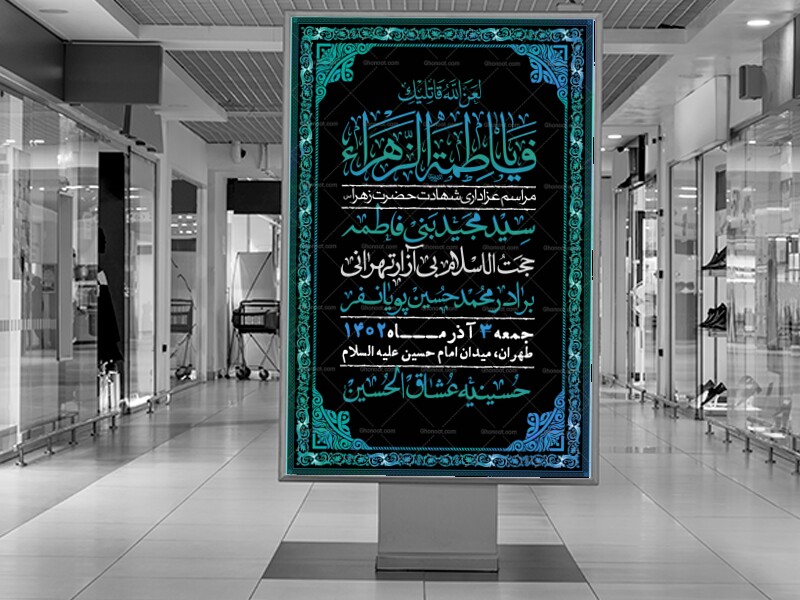 لعن الله قاتليك
فيا فاطمة الزهراء
مراسم عزاداری شهادت حضرت زهرا س
سید مجید بنی فاطمه
حجت الاسلام بی آزار تهرانی
برادر محمد حسین پویانفر
جمعه ۳ آذر مـــاه ۱۴۰۲
طهران، میدان امام حسین علیه السلام
حسینیه عشاق الحسین
Ghonoot.com